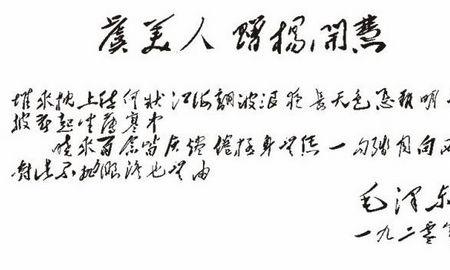 虞美人 赠楊開慧
堆来枕上愁何状江海翻波浪夜长天色怎难明
披衣起坐薄寒中
晓来百念皆灰烬倦极身无凭一勾残月向西
对此不抛眼泪也无由
毛泽东
一九二零年